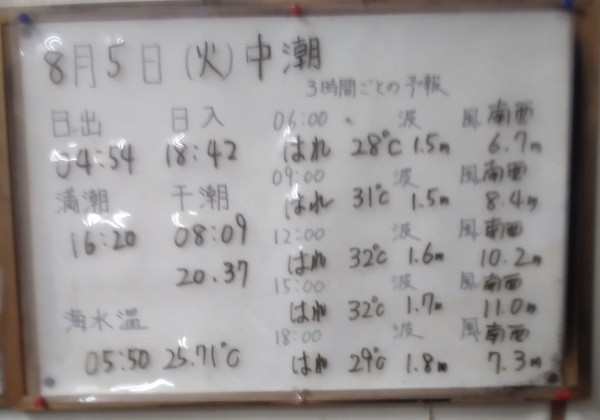 8月5日(火)中潮
3時間ごとの予報
日出 日入
04:54 18:42
満潮 干潮
16:20 08:09
20.37
海水温
05:50 25.71℃
06:00 波 風 南西
はれ 28℃ 1.5m 6.7m
09:00 波 風 南西
はれ 31℃ 1.5m 8.4m
12:00 波 風 南西
はれ 32℃ 1.6m 10.2m
15:00 波 風 南西
はれ 32℃ 1.7m 11.0m
18:00 波 風 南西
はれ 29℃ 1.8m 7.3m